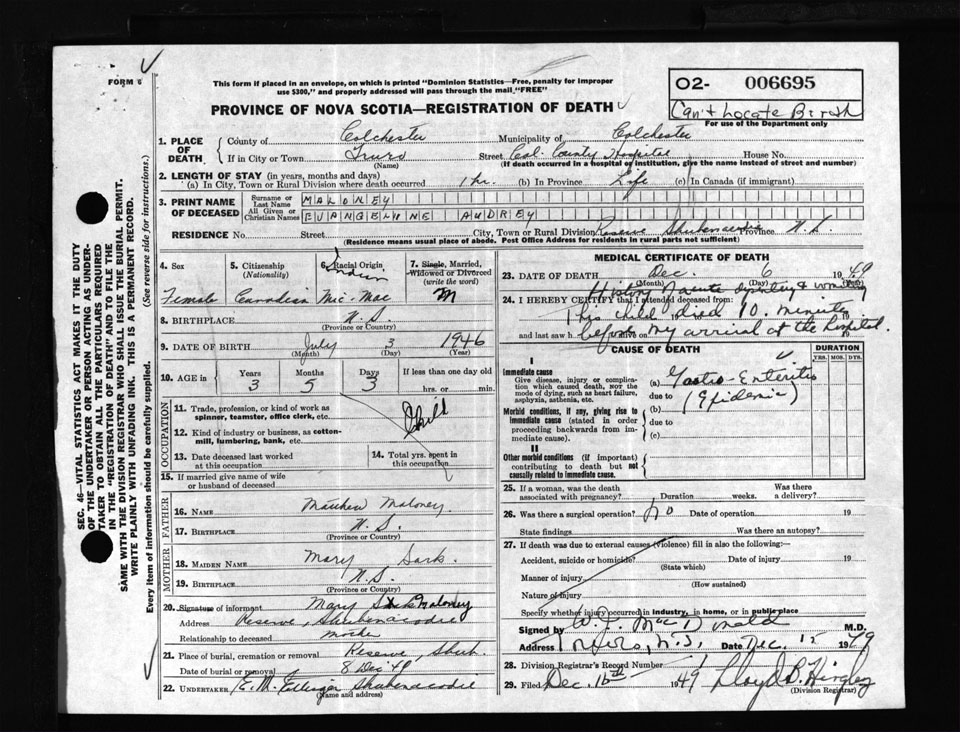 FORM 6
This form if placed in an envelope, on which is printed "Dominion Statistics—Free, penalty for improper
use $300," and properly addressed will pass through the mail "FREE"
O2- 006695
Can't Locate Birth
For use of the Department only
PROVINCE OF NOVA SCOTIA—REGISTRATION OF DEATH
1. PLACE OF DEATH
County of Colchester Municipality of Colchester
If in City or Town Truro Street Col. County Hospital House No.
(Name) (If death occurred in a hospital or institution, give the name instead of street and number)
2. LENGTH OF STAY (in years, months and days)
(a) In City, Town or Rural Division where death occurred 1 hr. (b) In Province Life (c) In Canada (if immigrant)
3. PRINT NAME OF DECEASED
Surname or Last Name MALONEY
All Given or Christian Names EVANGELINE AUDREY
RESIDENCE No. Street City, Town or Rural Division Reserve Shubenacadie Province N.S.
(Residence means usual place of abode. Post Office Address for residents in rural parts not sufficient)
4. Sex
Female
5. Citizenship
(Nationality)
Canadian
6. Racial Origin
Indian
Mic-Mac
7. Single, Married,
Widowed or Divorced
(write the word)
8. BIRTHPLACE N.S.
(Province or Country)
9. DATE OF BIRTH July 3 1946
(Month) (Day) (Year)
10. AGE in Years Months Days If less than one day old
3 5 3 hrs. or min.
OCCUPATION
11. Trade, profession, or kind of work as
spinner, teamster, office clerk, etc.
Child
12. Kind of industry or business, as cotton-
mill, lumbering, bank, etc.
13. Date deceased last worked
at this occupation
14. Total yrs. spent in
this occupation
15. If married give name of wife
or husband of deceased
FATHER
16. NAME Matthew Maloney
17. BIRTHPLACE N.S.
(Province or Country)
MOTHER
18. MAIDEN NAME Mary Sark
19. BIRTHPLACE N.S.
(Province or Country)
20. Signature of informant Mary Maloney
Address Reserve, Shubenacadie
Relationship to deceased Mother
21. Place of burial, cremation or removal Reserve, Shub.
Date of burial or removal 8 Dec 49
22. UNDERTAKER Shubenacadie
(Name and address)
MEDICAL CERTIFICATE OF DEATH
23. DATE OF DEATH Dec. 6 1949
(Month) (Day) (Year)
24. I HEREBY CERTIFY that I attended deceased from:
History of acute dysentery & vomiting
This child died 10 minutes
and last saw h alive on 19
before my arrival at the hospital.
CAUSE OF DEATH
DURATION
YRS. MOS. DYS.
I
Immediate cause
Give disease, injury or complica-
tion which caused death, NOT the
mode of dying, such as heart failure,
asphyxia, asthenia, etc.
(a) Gastro-Enteritis
due to (Epidemic)
Morbid conditions, if any, giving rise to
immediate cause (stated in order
proceeding backwards from im-
mediate cause).
(b)
due to
(c)
II
Other morbid conditions (if important)
contributing to death but not
causally related to immediate cause.
25. If a woman, was the death
associated with pregnancy? Duration weeks. Was there
a delivery?
26. Was there a surgical operation? No Date of operation 19
State findings Was there an autopsy?
27. If death was due to external causes (violence) fill in also the following:—
Accident, suicide or homicide? Date of injury 19
(State which)
Manner of injury
(How sustained)
Nature of injury
Specify whether injury occurred in industry, in home, or in public place
Signed by M.D.
Address Truro, N.S. Date Dec. 15 1949
28. Division Registrar's Record Number
29. Filed Dec. 16th 1949 Lloyd B. Hingley
(Division Registrar)
SEC. 46—VITAL STATISTICS ACT MAKES IT THE DUTY
OF THE UNDERTAKER OR PERSON ACTING AS UNDER-
TAKER TO OBTAIN ALL THE PARTICULARS REQUIRED
IN THE "REGISTRATION OF DEATH" AND TO FILE THE
SAME WITH THE DIVISION REGISTRAR WHO SHALL ISSUE THE BURIAL PERMIT.
WRITE PLAINLY WITH UNFADING INK. THIS IS A PERMANENT RECORD.
Every item of information should be carefully supplied. (See reverse side for instructions.)